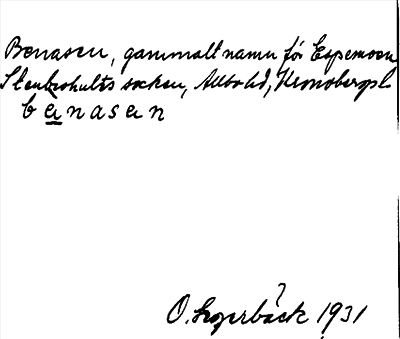 Benasen, gammalt namn för Espemoen
Stenbrohults socken, Allbo hd, Kronobergs l.
benasen
O. 1931